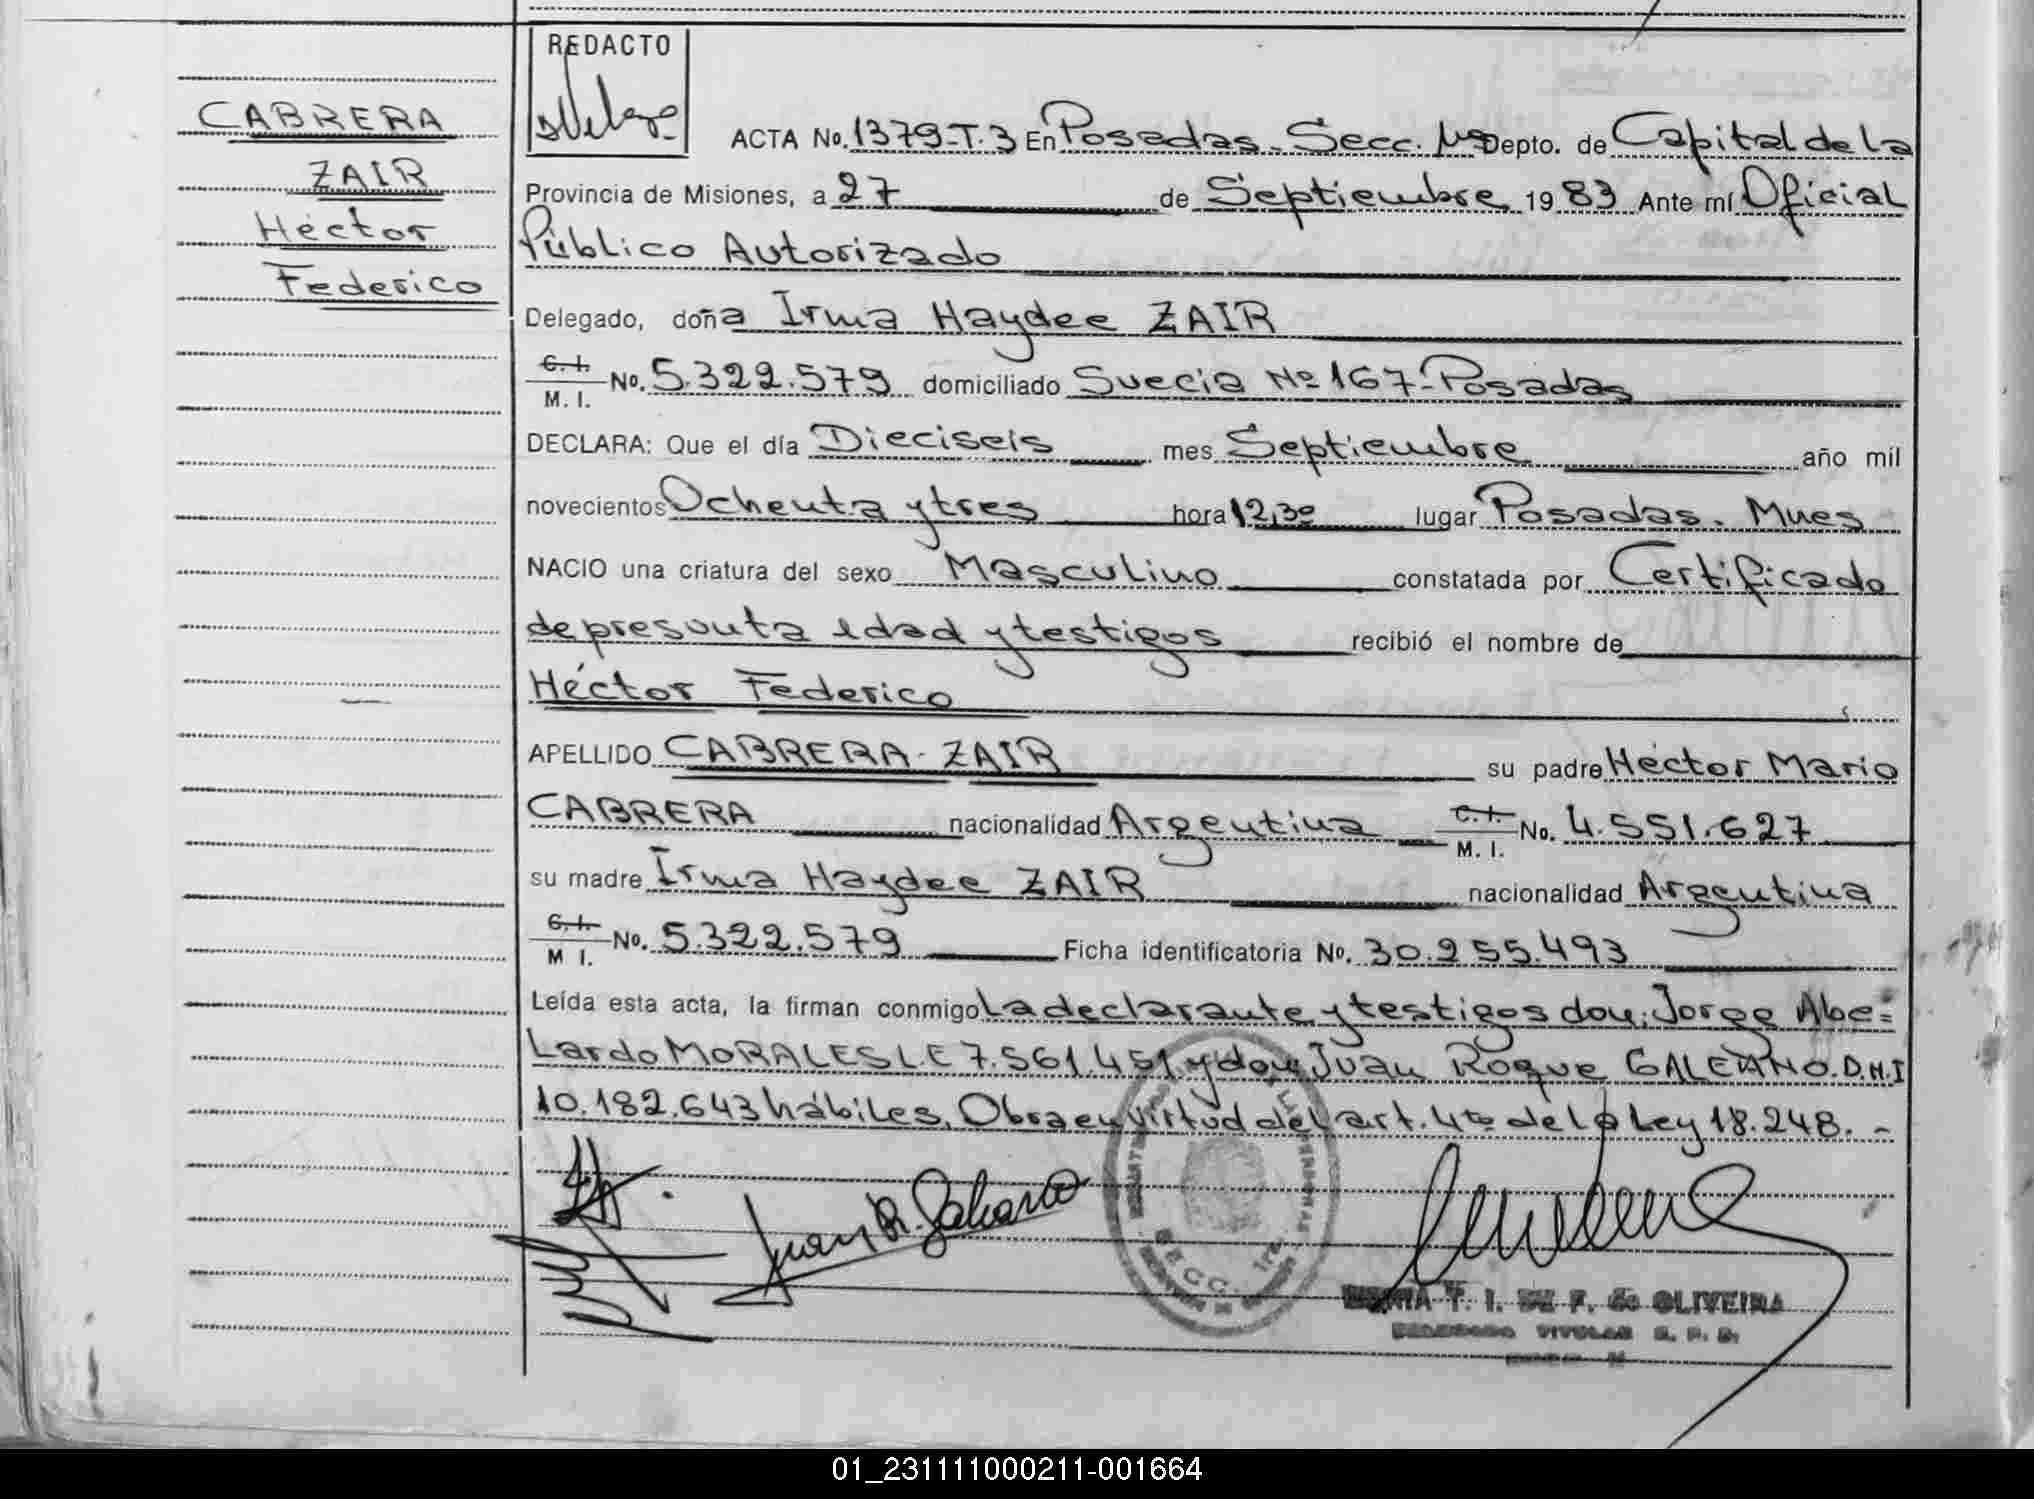 REDACTO
CABRERA
ZAIR
Héctor
Federico
ACTA No. 1379-T.3 En Posadas. Secc. Depto. de Capital de la
Provincia de Misiones, a 27 de Septiembre 1983 Ante mí Oficial
Público Autorizado
Delegado, doña Irma Haydee ZAIR
C.I. M. I. No. 5.322.579 domiciliado Suecia Nº 167-Posadas
DECLARA: Que el día Dieciseis mes Septiembre año mil
novecientos Ochenta y tres hora 12,30 lugar Posadas. Mnes
NACIO una criatura del sexo Masculino constatada por Certificado
de presunta edad y testigos recibió el nombre de
Héctor Federico
APELLIDO CABRERA-ZAIR su padre Héctor Mario
CABRERA nacionalidad Argentina C.I. M. I. No. 4.551.627
su madre Irma Haydee ZAIR nacionalidad Argentina
C.I. M I. No. 5.322.579 Ficha identificatoria No. 30.255.493
Leída esta acta, la firman conmigo La declarante y testigos don: Jorge Abe=
Lardo MORALES L.E 7.561.451 y don Juan Roque GALEANO. D.N.I
10.182.643 hábiles. Obra en virtud del art. 4to de la Ley 18.248. -
Juan R. Galeano
SECC. 1ra.
T. I. DE F. de OLIVEIRA
TITULAR
01_231111000211-001664